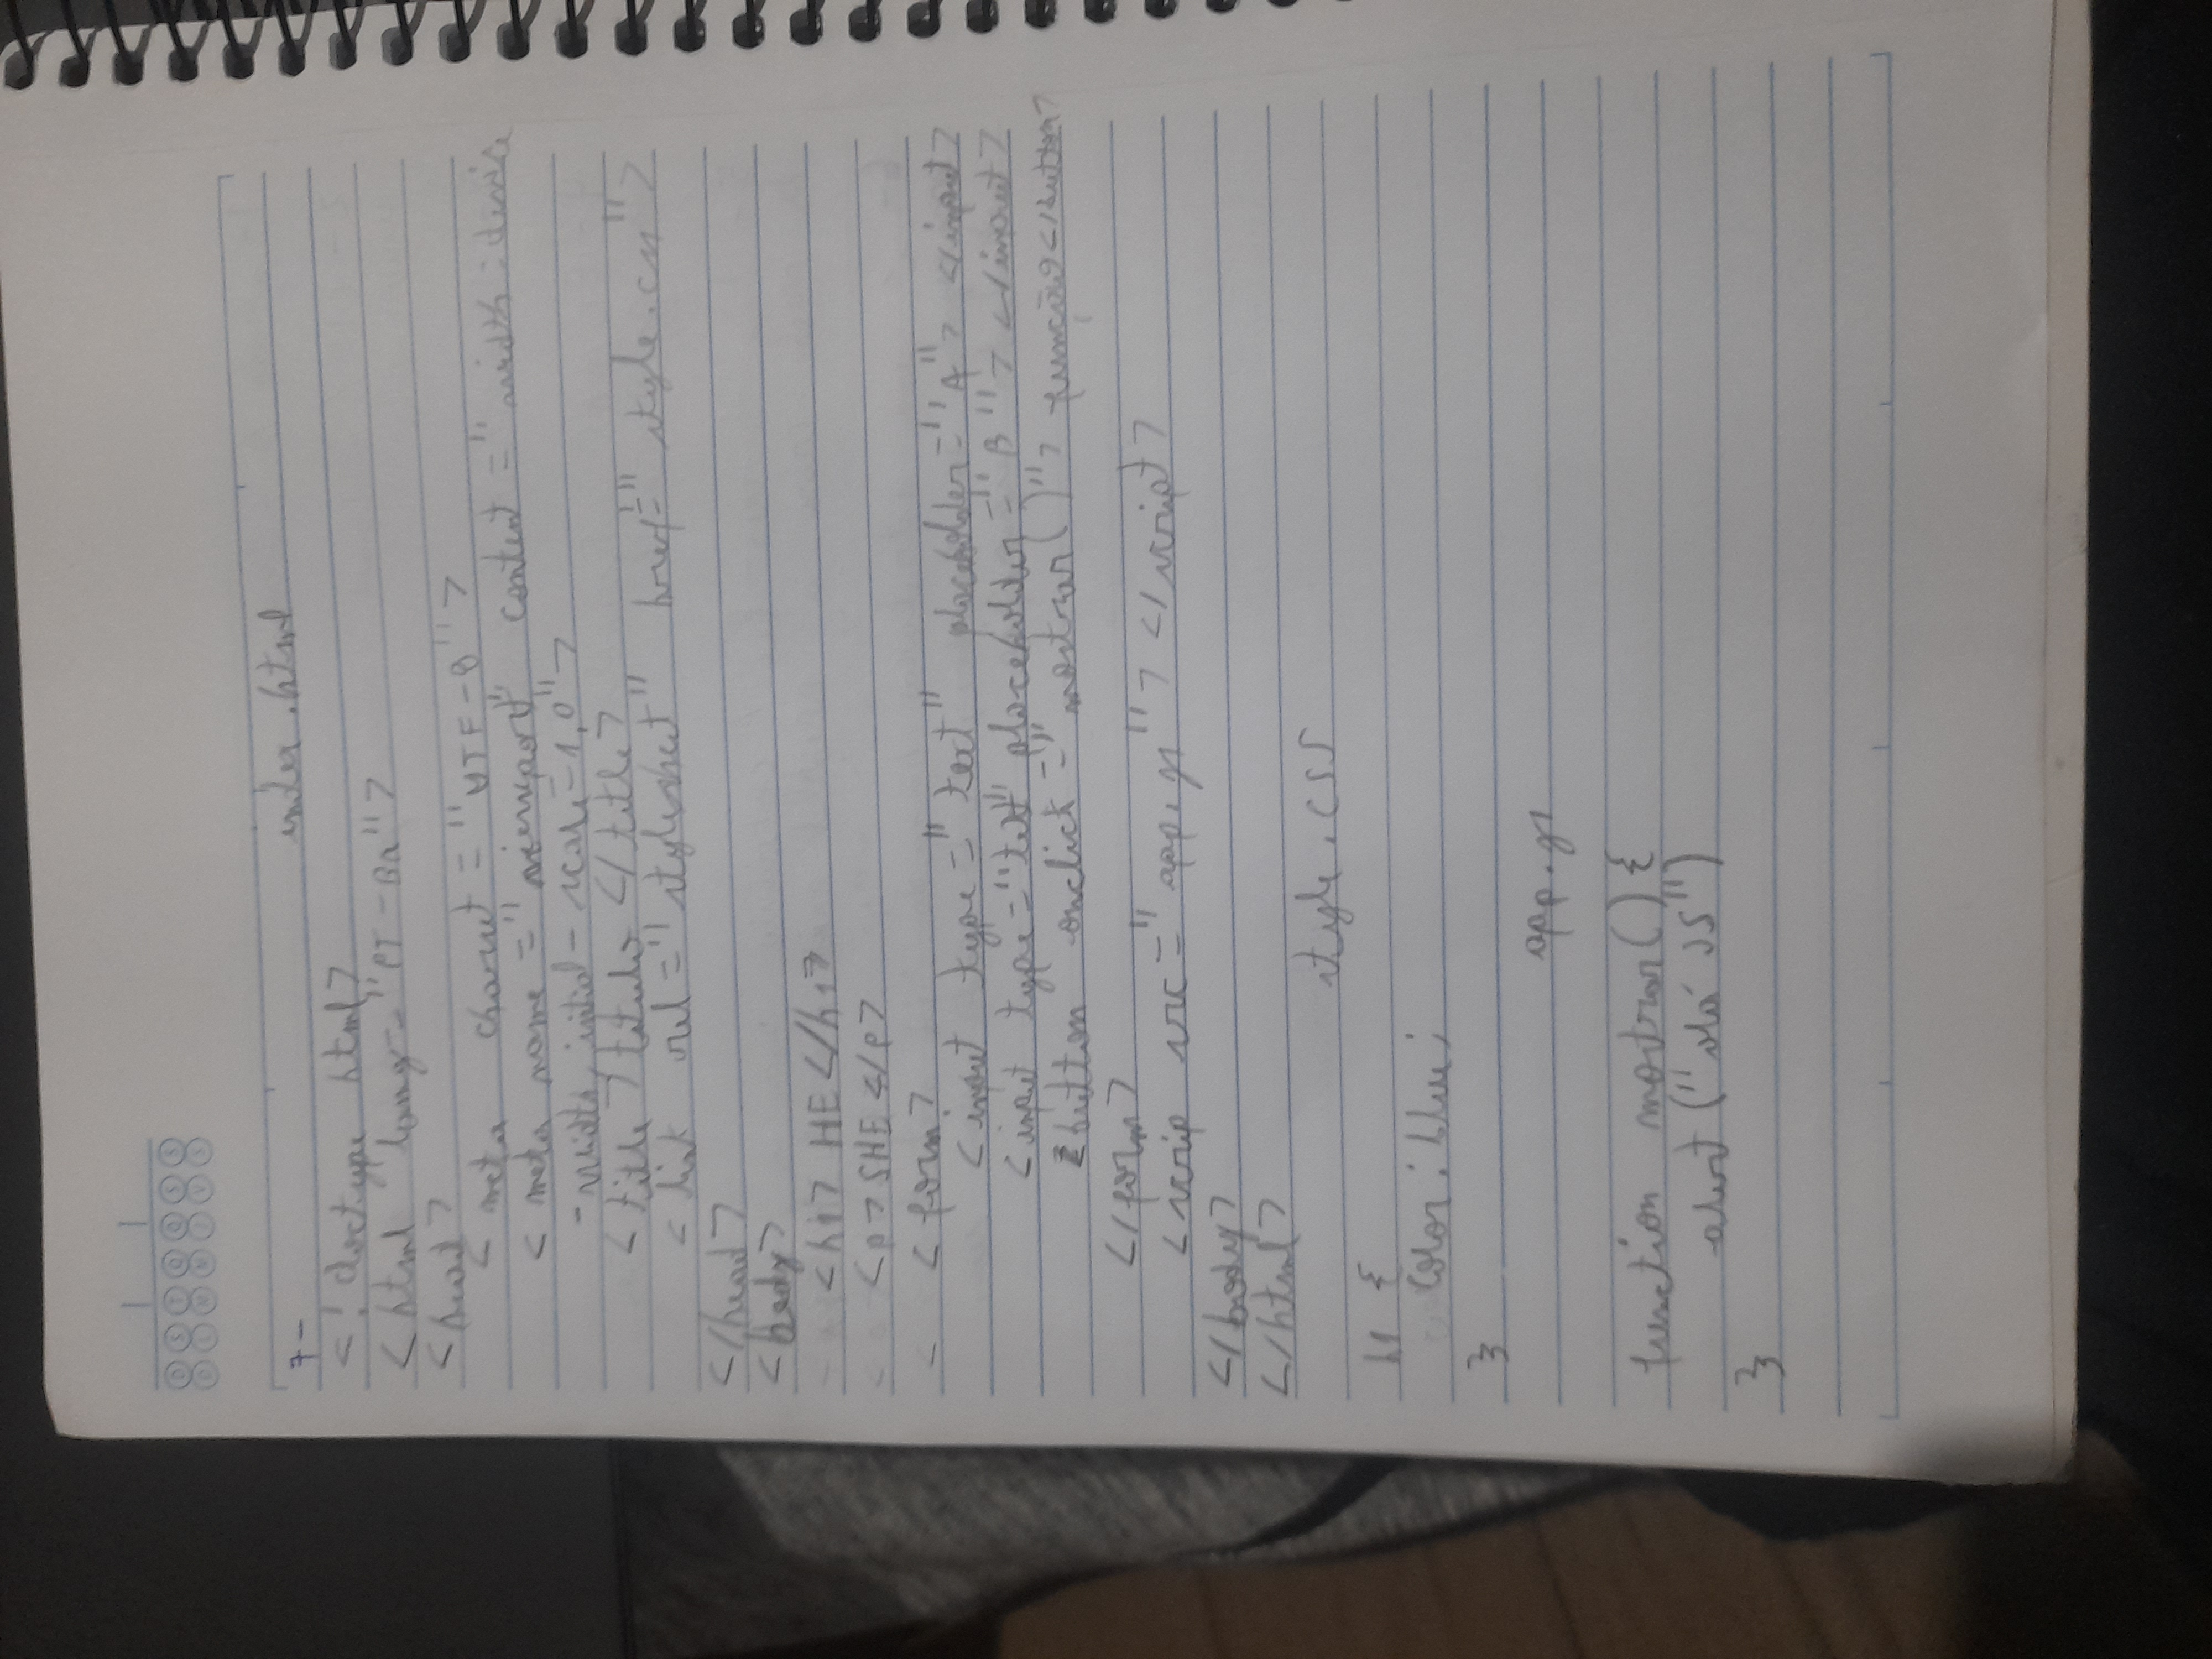 D S T Q Q S S
D L M M J V S
7- index.html
<! doctype html>
<html lang="PT-BR">
<head>
< meta charset = "UTF-8">
< meta name = "viewport" content = "width : device
-width, initial-scale=1,0">
< title > titulo </title>
< link rel = "stylesheet" href="style.css">
</head>
<body>
<h1> HE </h1>
<p> SHE </p>
< form>
<input type = "text" placeholder = "A"> </input>
<input type = "text" placeholder = "B"> </input>
<button onclick = "mostrar()"> </button>
</form>
<scrip src = "app.js"> </script>
</body>
</html>
style.css
h1 {
color: blue;
}
app.js
function mostrar() {
alert ("olá JS")
}